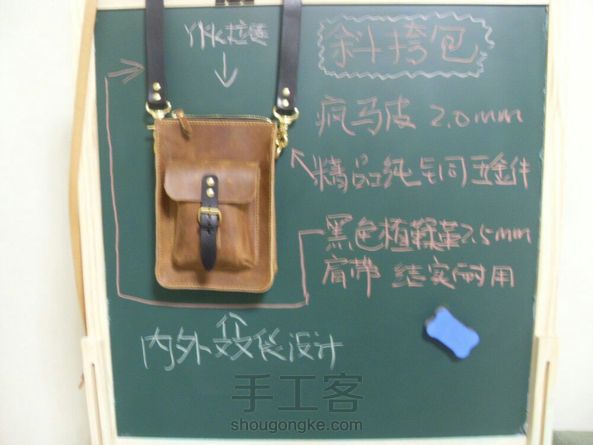 YKK拉链
斜挎包
疯马皮 2.0mm
精品纯铜五金件
黑色植鞣革2.5mm
肩带 结实耐用
内外袋设计
手工客
shougongke.com